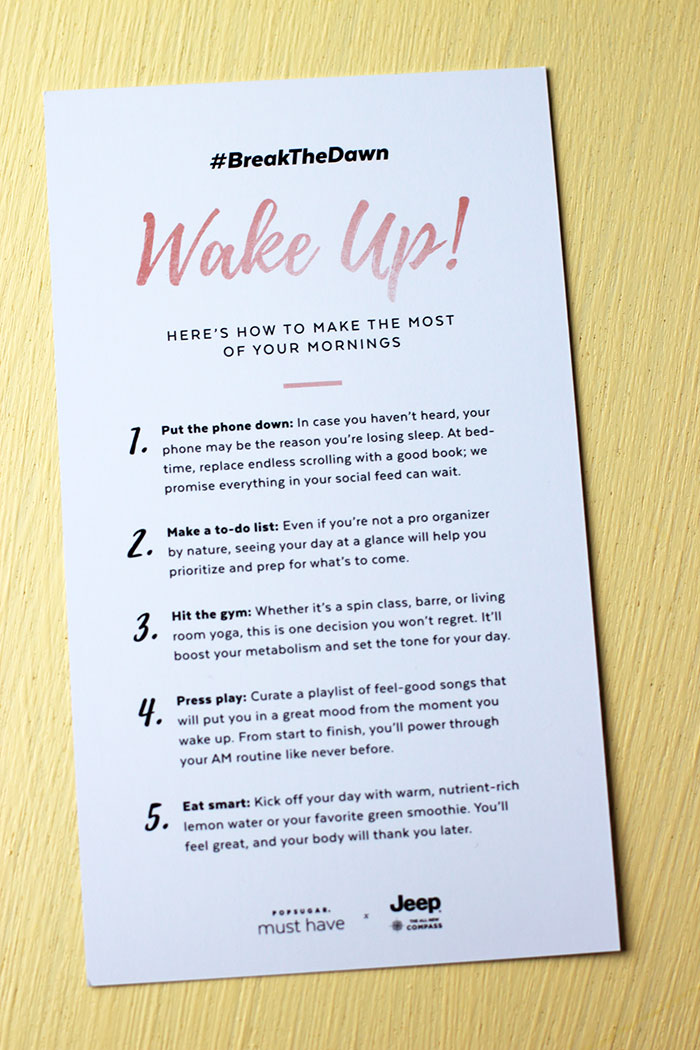 #BreakTheDawn
Wake Up!
HERE'S HOW TO MAKE THE MOST
OF YOUR MORNINGS
1. Put the phone down: In case you haven't heard, your
phone may be the reason you're losing sleep. At bed-
time, replace endless scrolling with a good book; we
promise everything in your social feed can wait.
2. Make a to-do list: Even if you're not a pro organizer
by nature, seeing your day at a glance will help you
prioritize and prep for what's to come.
3. Hit the gym: Whether it's a spin class, barre, or living
room yoga, this is one decision you won't regret. It'll
boost your metabolism and set the tone for your day.
4. Press play: Curate a playlist of feel-good songs that
will put you in a great mood from the moment you
wake up. From start to finish, you'll power through
your AM routine like never before.
5. Eat smart: Kick off your day with warm, nutrient-rich
lemon water or your favorite green smoothie. You'll
feel great, and your body will thank you later.
POPSUGAR.
must have
x
Jeep
THE ALL NEW
COMPASS